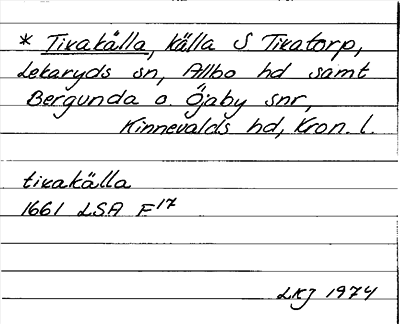 * Tivakälla, källa S Tivatorp,
Lekaryds sn, Allbo hd samt
Bergunda o. Öjaby snr,
Kinnevalds hd, Kron. l.
tivakälla
1661 LSA F¹⁷
LKJ 1974